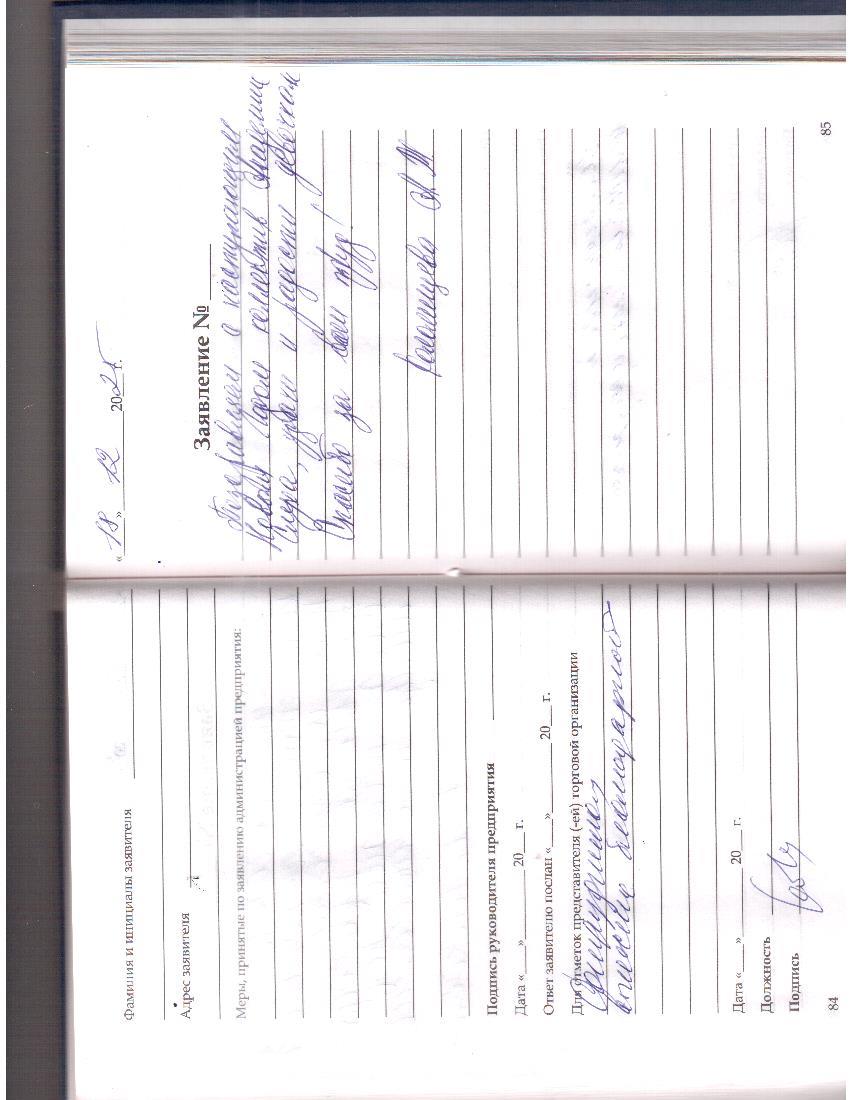 Фамилия и инициалы заявителя
Адрес заявителя
Меры, принятые по заявлению администрацией предприятия:
Подпись руководителя предприятия
Дата «___» ________ 20___ г.
Ответ заявителю послан «___» ________ 20___ г.
Для отметок представителя (-ей) торговой организации
объявить благодарность
Дата «___» ________ 20___ г.
Должность
Подпись
84
«18» 12 2025 г.
Заявление №
Поздравляем с наступающим
Новым Годом коллектив
удачи и радости девочкам
Спасибо за ваш труд!
85